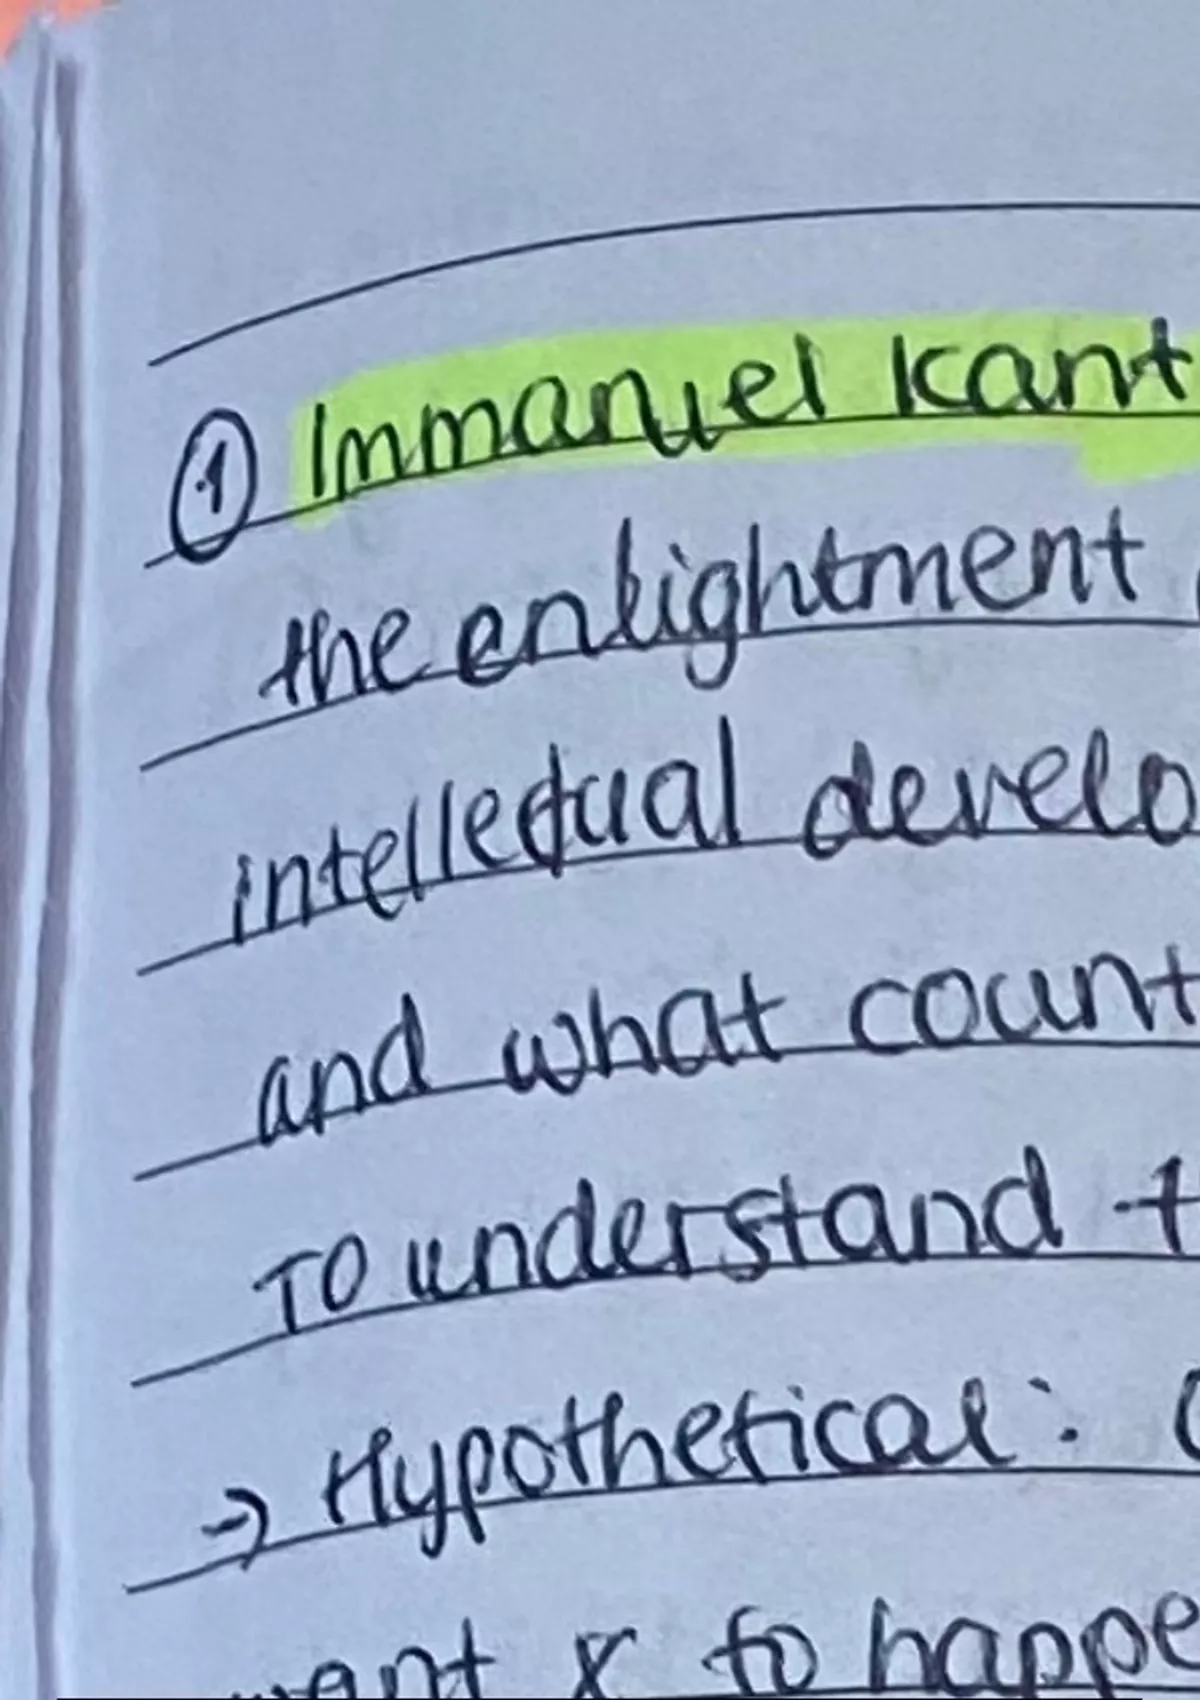 ① Immanuel Kant
the enlightment
intellectual develo
and what count
TO understand t
→ Hypothetical:
want x to happe